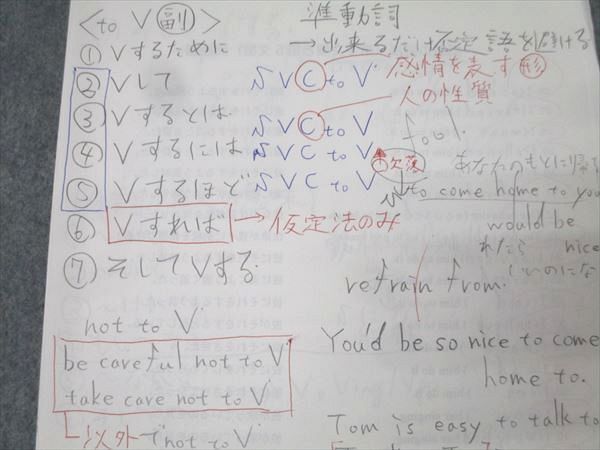 <to V 副>
準動詞
① Vするために
→出来るだけ否定語を避ける
② Vして SVC to V 感情を表す形
③ Vするとは SVC to V 人の性質
fool
④ Vするには SVC to V 欠落
あなたのもとに帰
⑤ Vするほど SVC to V
to come home to you
would be
nice
⑥ Vすれば → 仮定法のみ
⑦ そしてVする
refrain from
not to V
be careful not to V
take care not to V
以外でnot to V
You'd be so nice to come
home to.
Tom is easy to talk to